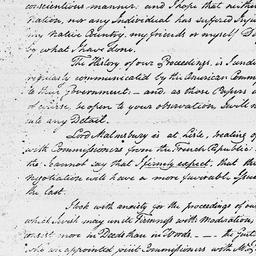 conscientious manner, and I hope that neither
Nation, nor any Individual has suffered Injury
my Native Country, my friends or myself
by what I have done.
The History of our Proceedings, is
regularly communicated by the American Comm
to their Government — and, as those Papers
of course, be open to your observation, I will n
into any Detail.
Lord Malmsbury is at Lisle, treating
with Commissioners from the French Republic:
I cannot say that I firmly expect, that th
negotiation will have a more favorable
the last.
I look with anxiety for the proceedings of ou
which I wish may unite Firmness with Moderation,
consist more in Deeds than in Words. — —
appointed joint Commissioners with Mr